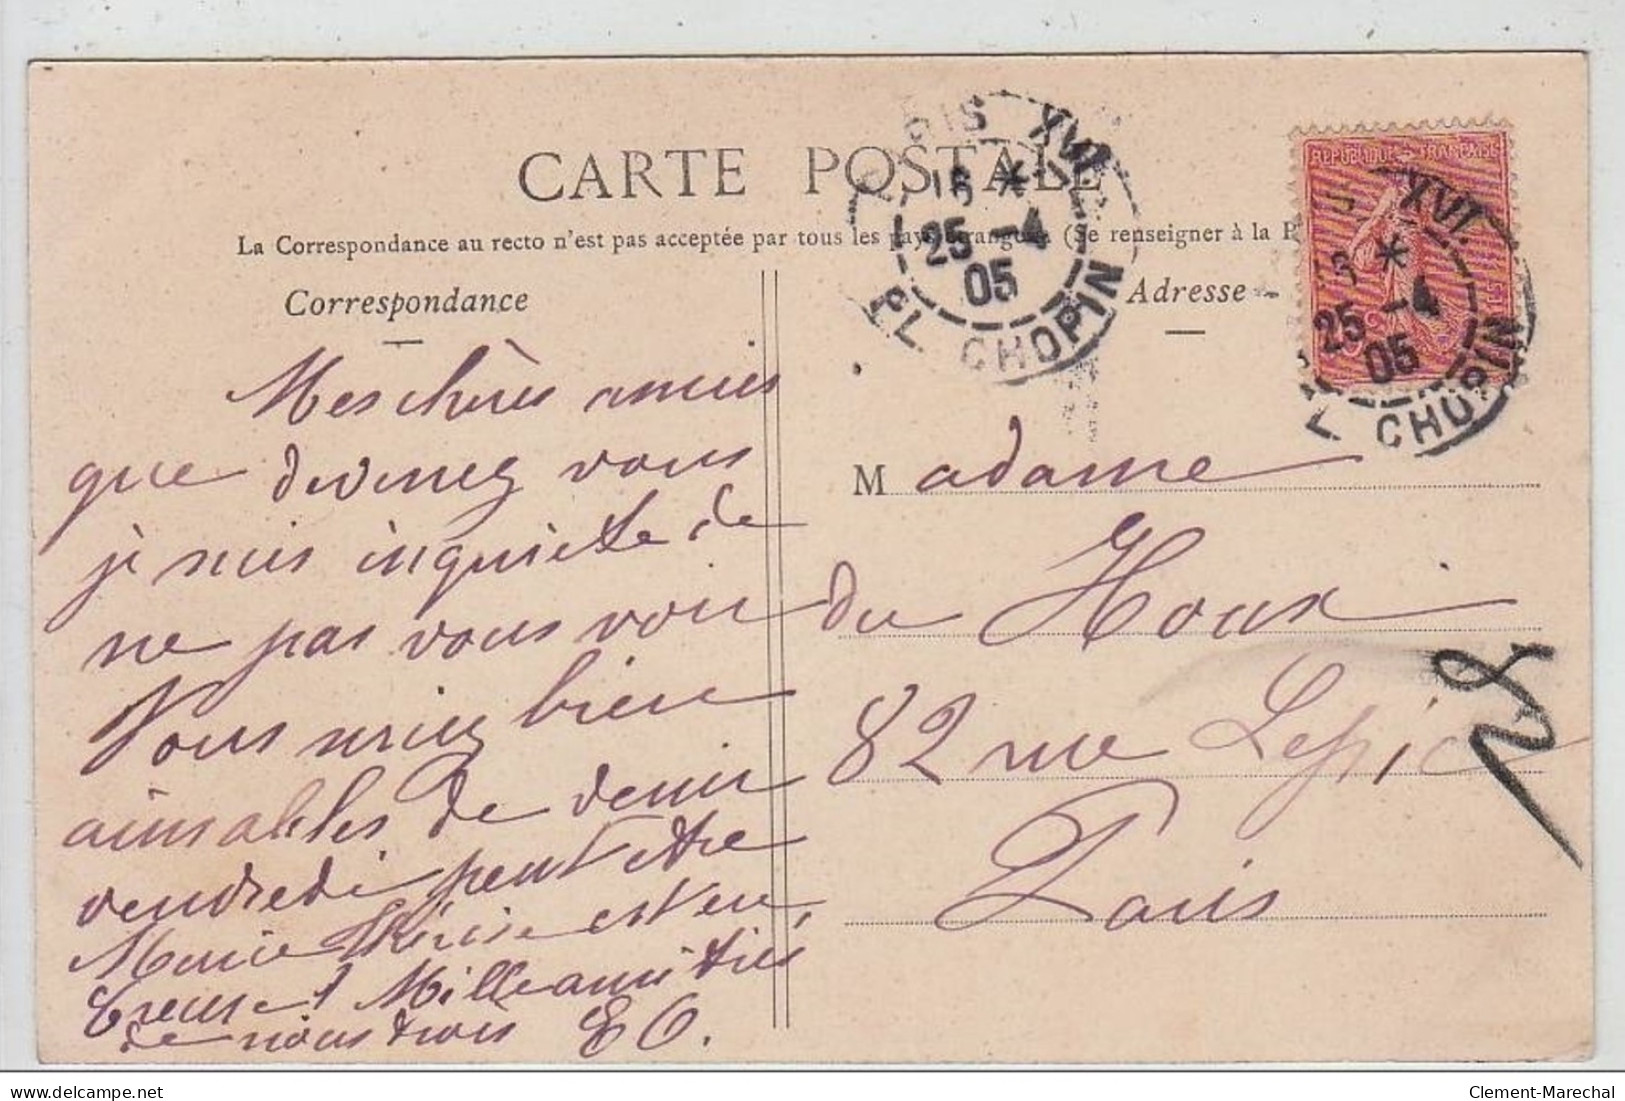 CARTE POSTALE
La Correspondance au recto n'est pas acceptée par tous les pays étrangers. (Se renseigner à la P
Correspondance
Adresse
PARIS XVI
16 *
25 - 4
05
PL. CHOPIN
REPUBLIQUE FRANÇAISE
XVI
16 *
25 - 4
05
CHOPIN
Mes chères amies
que devenez vous
je suis inquiete de
ne pas vous voir
Vous seriez bien
aimables de venir
vendredi peut etre
Marie Thérèse est en
Creuse! Mille amitiés
de nous trois EO.
Madame
du Houx
82 rue Lepic
Paris
delcampe.net
Clement-Marechal